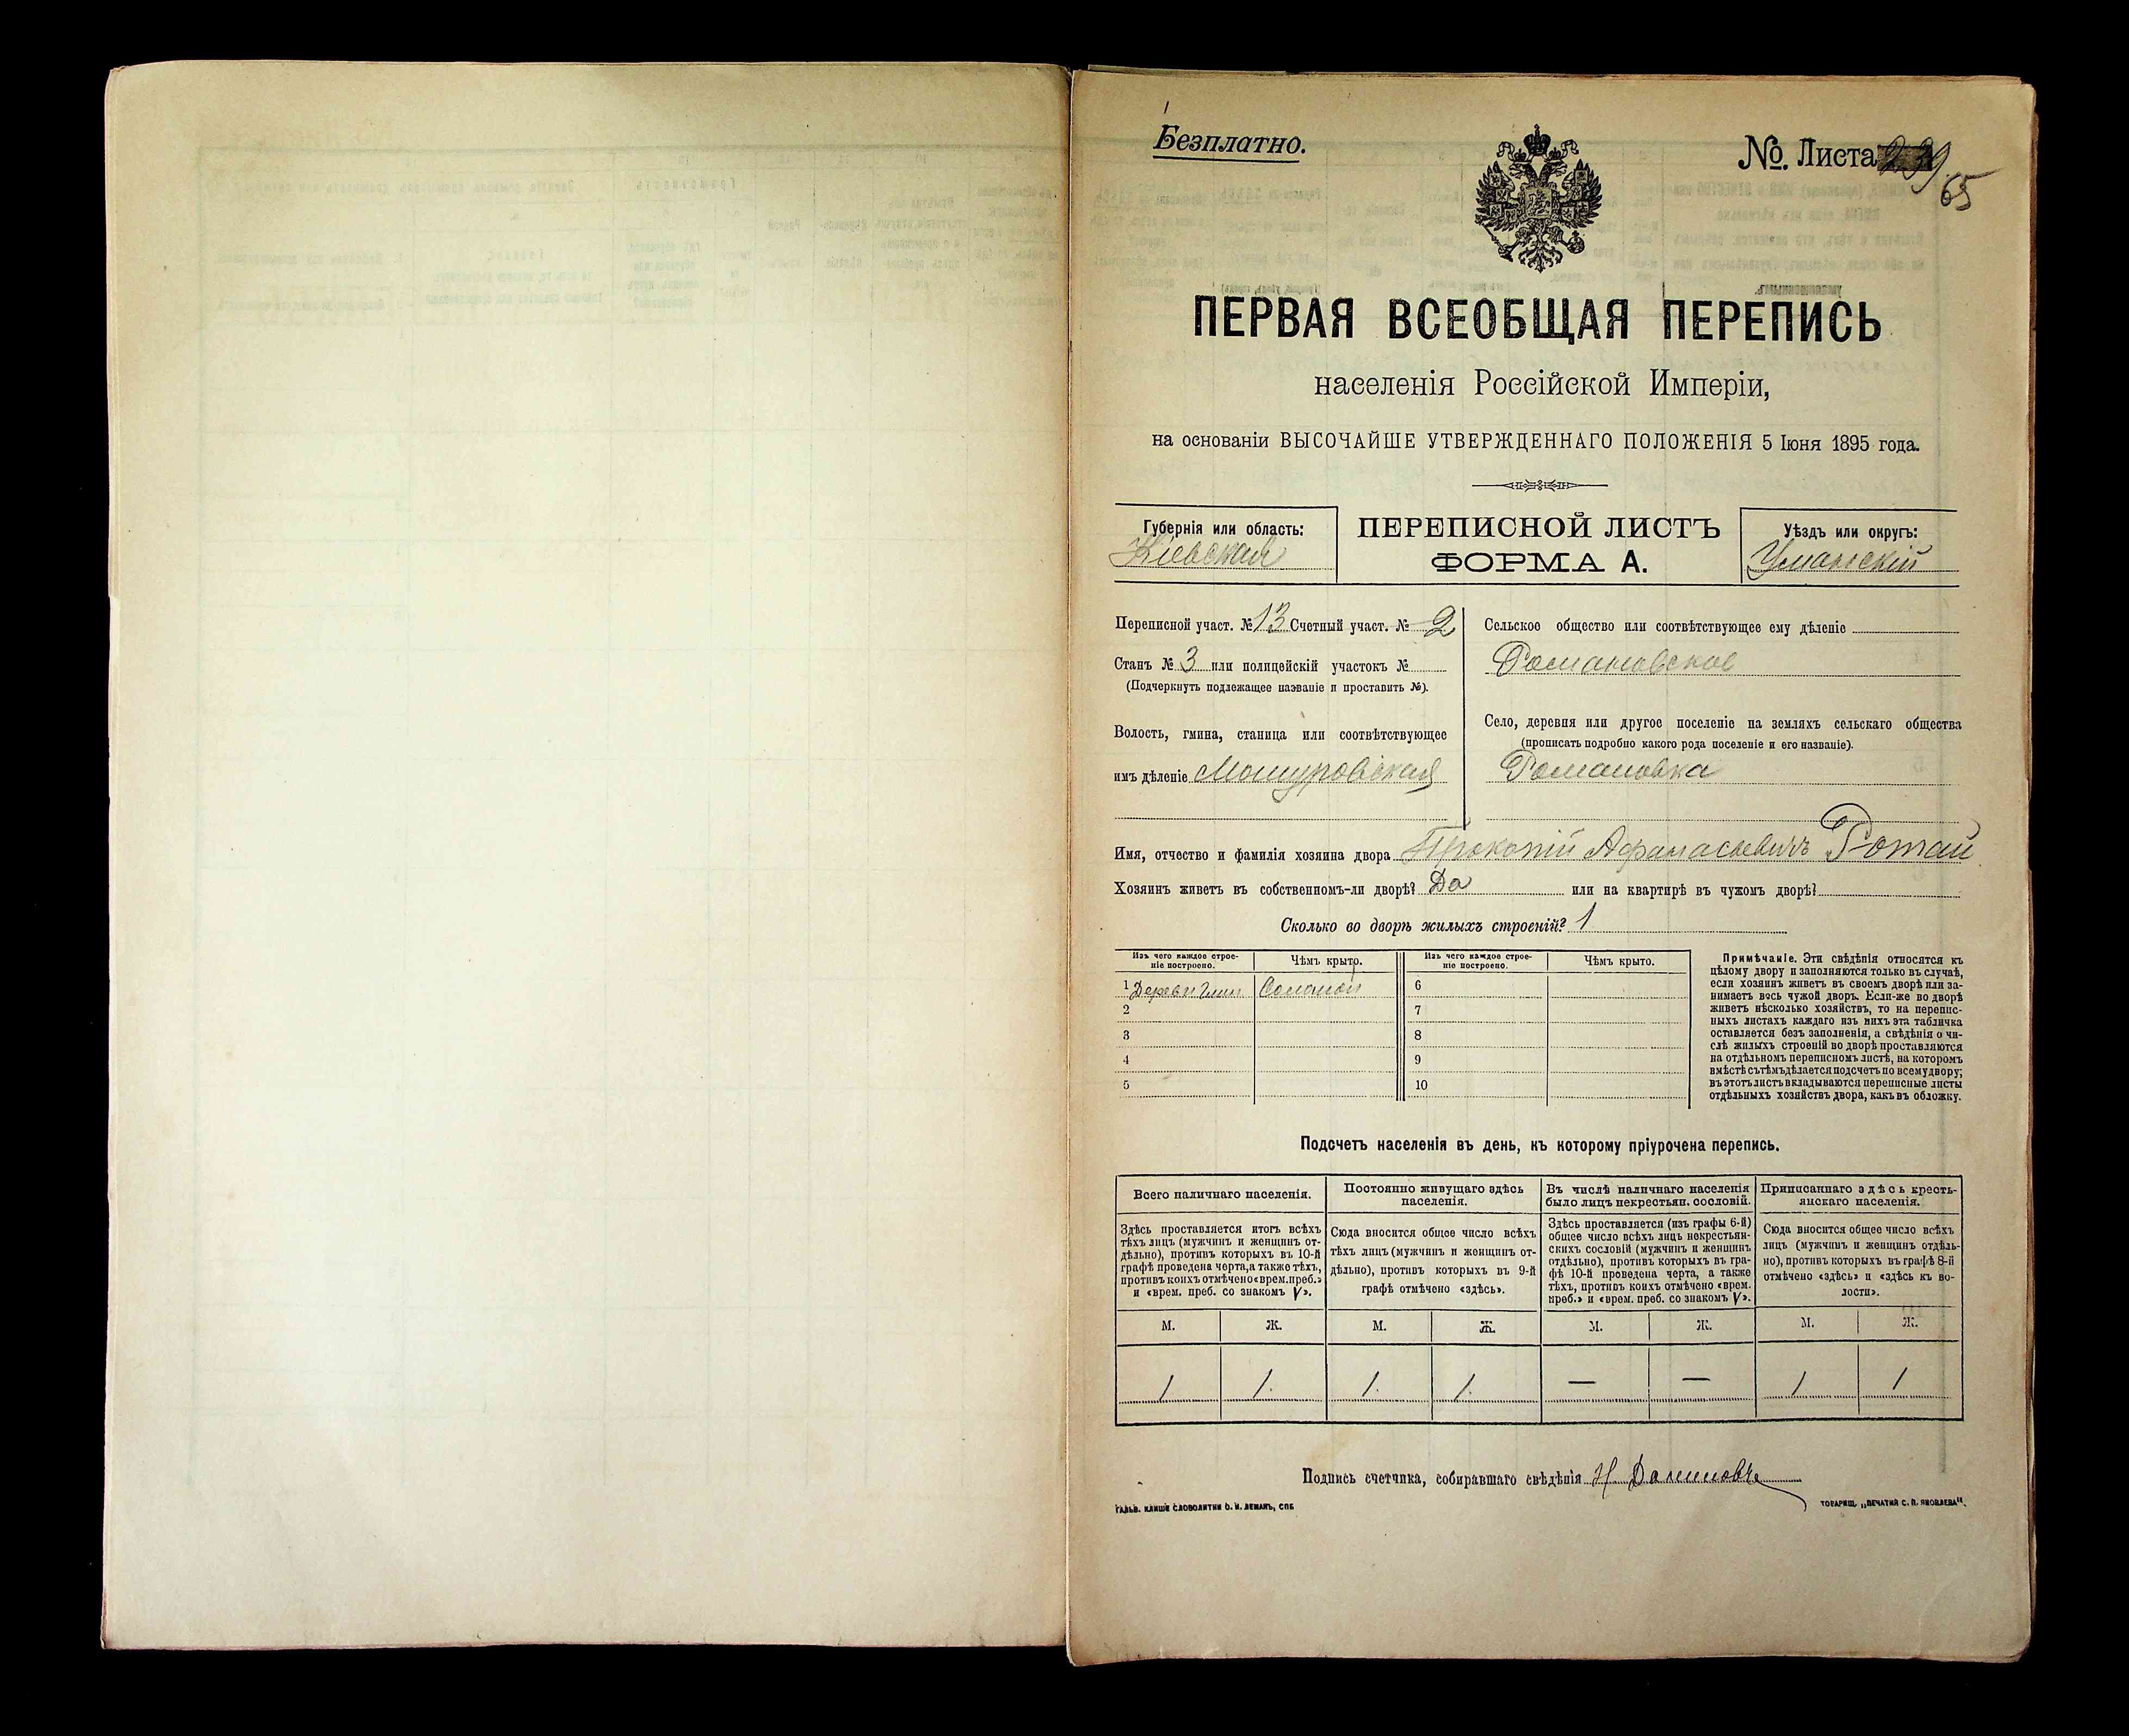 Безплатно.
№. Листа 39
65
ПЕРВАЯ ВСЕОБЩАЯ ПЕРЕПИСЬ
населенія Россійской Имперіи,
на основаніи ВЫСОЧАЙШЕ УТВЕРЖДЕННАГО ПОЛОЖЕНІЯ 5 Іюня 1895 года.
Губернія или область:
Кіевская
ПЕРЕПИСНОЙ ЛИСТЪ
ФОРМА А.
Уѣздъ или округъ:
Уманскій
Переписной участ. № 13 Счетный участ. № 2
Станъ № 3 или полицейскій участокъ №
(Подчеркнуть подлежащее названіе и проставить №).
Волость, гмина, станица или соотвѣтствующее
имъ дѣленіе Машуровская
Сельское общество или соотвѣтствующее ему дѣленіе
Романовское
Село, деревня или другое поселеніе на земляхъ сельскаго общества
(прописать подробно какого рода поселеніе и его названіе).
Романовка
Имя, отчество и фамилія хозяина двора Прокопій Афанасьевичъ Ротай
Хозяинъ живетъ въ собственномъ-ли дворѣ? Да или на квартирѣ въ чужомъ дворѣ?
Сколько во дворѣ жилыхъ строеній? 1
Изъ чего каждое строе-
ніе построено.
Чѣмъ крыто.
Изъ чего каждое строе-
ніе построено.
Чѣмъ крыто.
1 Дерев и Глин Соломой 6
2 7
3 8
4 9
5 10
Примѣчаніе. Эти свѣдѣнія относятся къ
цѣлому двору и заполняются только въ случаѣ,
если хозяинъ живетъ въ своемъ дворѣ или за-
нимаетъ весь чужой дворъ. Если-же во дворѣ
живетъ нѣсколько хозяйствъ, то на перепис-
ныхъ листахъ каждаго изъ нихъ эта табличка
оставляется безъ заполненія, а свѣдѣнія о чи-
слѣ жилыхъ строеній во дворѣ проставляются
на отдѣльномъ переписномъ листѣ, на которомъ
вмѣстѣ съ тѣмъ дѣлается подсчетъ по всему двору;
въ этотъ листъ вкладываются переписные листы
отдѣльныхъ хозяйствъ двора, какъ въ обложку.
Подсчетъ населенія въ день, къ которому пріурочена перепись.
Всего наличнаго населенія.
Здѣсь проставляется итогъ всѣхъ
тѣхъ лицъ (мужчинъ и женщинъ от-
дѣльно), противъ которыхъ въ 10-й
графѣ проведена черта, а также тѣхъ,
противъ коихъ отмѣчено «врем. преб.»
и «врем. преб. со знакомъ V».
Постоянно живущаго здѣсь
населенія.
Сюда вносится общее число всѣхъ
тѣхъ лицъ (мужчинъ и женщинъ от-
дѣльно), противъ которыхъ въ 9-й
графѣ отмѣчено «здѣсь».
Въ числѣ наличнаго населенія
было лицъ некрестьян. сословій.
Здѣсь проставляется (изъ графы 6-й)
общее число всѣхъ лицъ некрестьян-
скихъ сословій (мужчинъ и женщинъ
отдѣльно), противъ которыхъ въ гра-
фѣ 10-й проведена черта, а также
тѣхъ, противъ коихъ отмѣчено «врем.
преб.» и «врем. преб. со знакомъ V».
Приписаннаго здѣсь кресть-
янскаго населенія.
Сюда вносится общее число всѣхъ
лицъ (мужчинъ и женщинъ отдѣль-
но), противъ которыхъ въ графѣ 8-й
отмѣчено «здѣсь» и «здѣсь къ во-
лости».
М. Ж. М. Ж. М. Ж. М. Ж.
1 1. 1. 1. — — 1 1
Подпись счетчика, собиравшаго свѣдѣнія Н
ГАЛЬВ. КЛИШЕ СЛОВОЛИТНИ О. И. ЛЕМАНЪ, СПБ
ТОВАРИЩ. „ПЕЧАТНЯ С. П. ЯКОВЛЕВА".